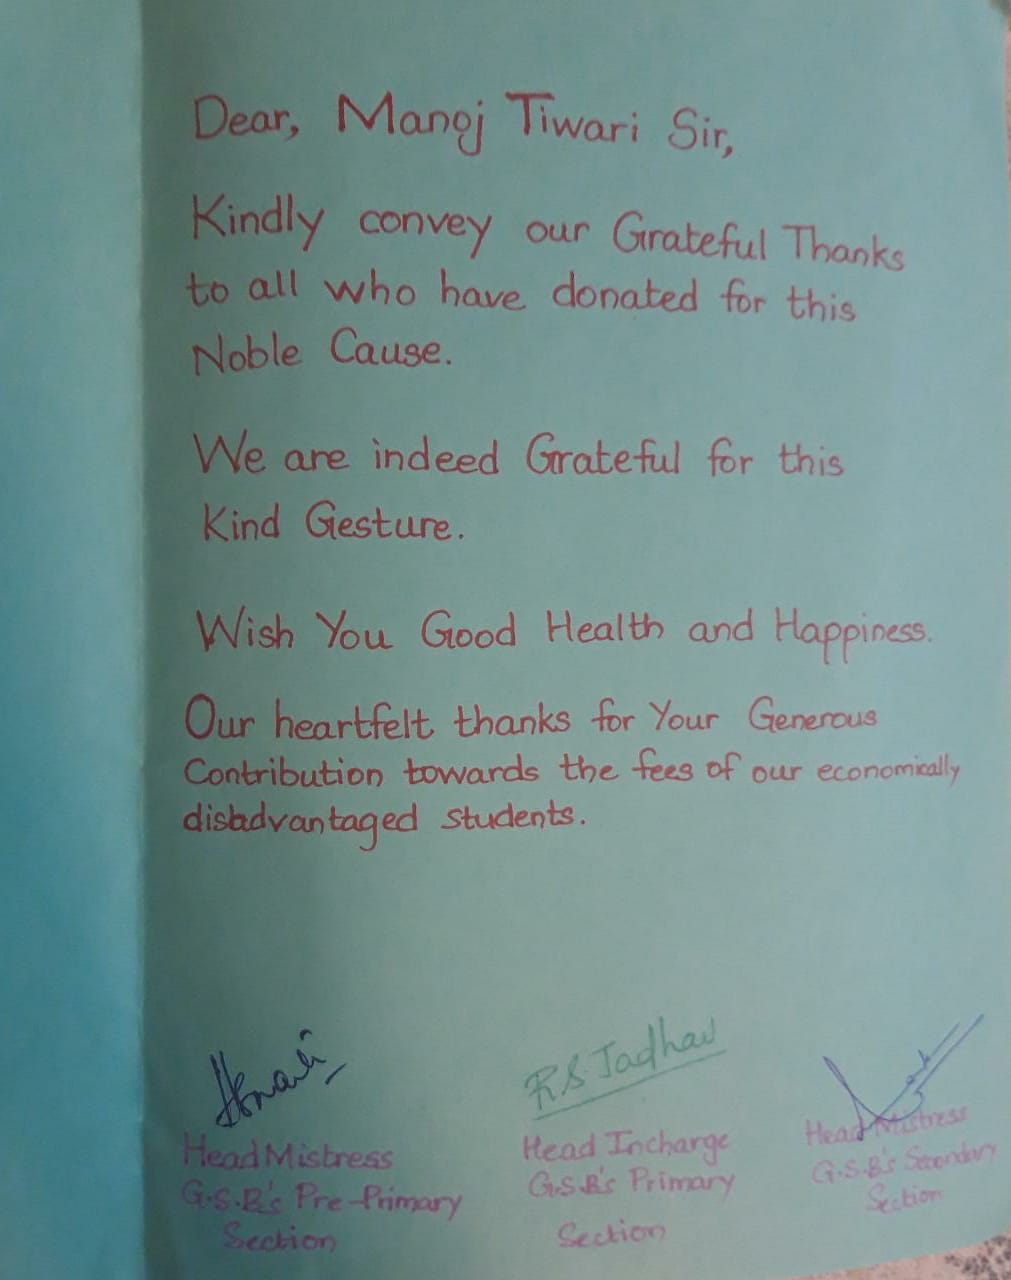 Dear, Manoj Tiwari Sir,
Kindly convey our Grateful Thanks
to all who have donated for this
Noble Cause.
We are indeed Grateful for this
Kind Gesture.
Wish You Good Health and Happiness.
Our heartfelt thanks for Your Generous
Contribution towards the fees of our economically
disadvantaged students.
R.S Jadhav
Head Mistress
G.S.B's Pre-Primary
Section
Head Incharge
G.S.B's Primary
Section
Head Mistress
G.S.B's Secondary
Section